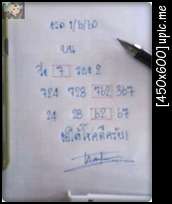 งวด 1/6/60
บน
วิ่ง 7 รอง 2
724 728 762 367
24 28 62 67
ขอให้โชคดีครับ
[450x600] upic.me